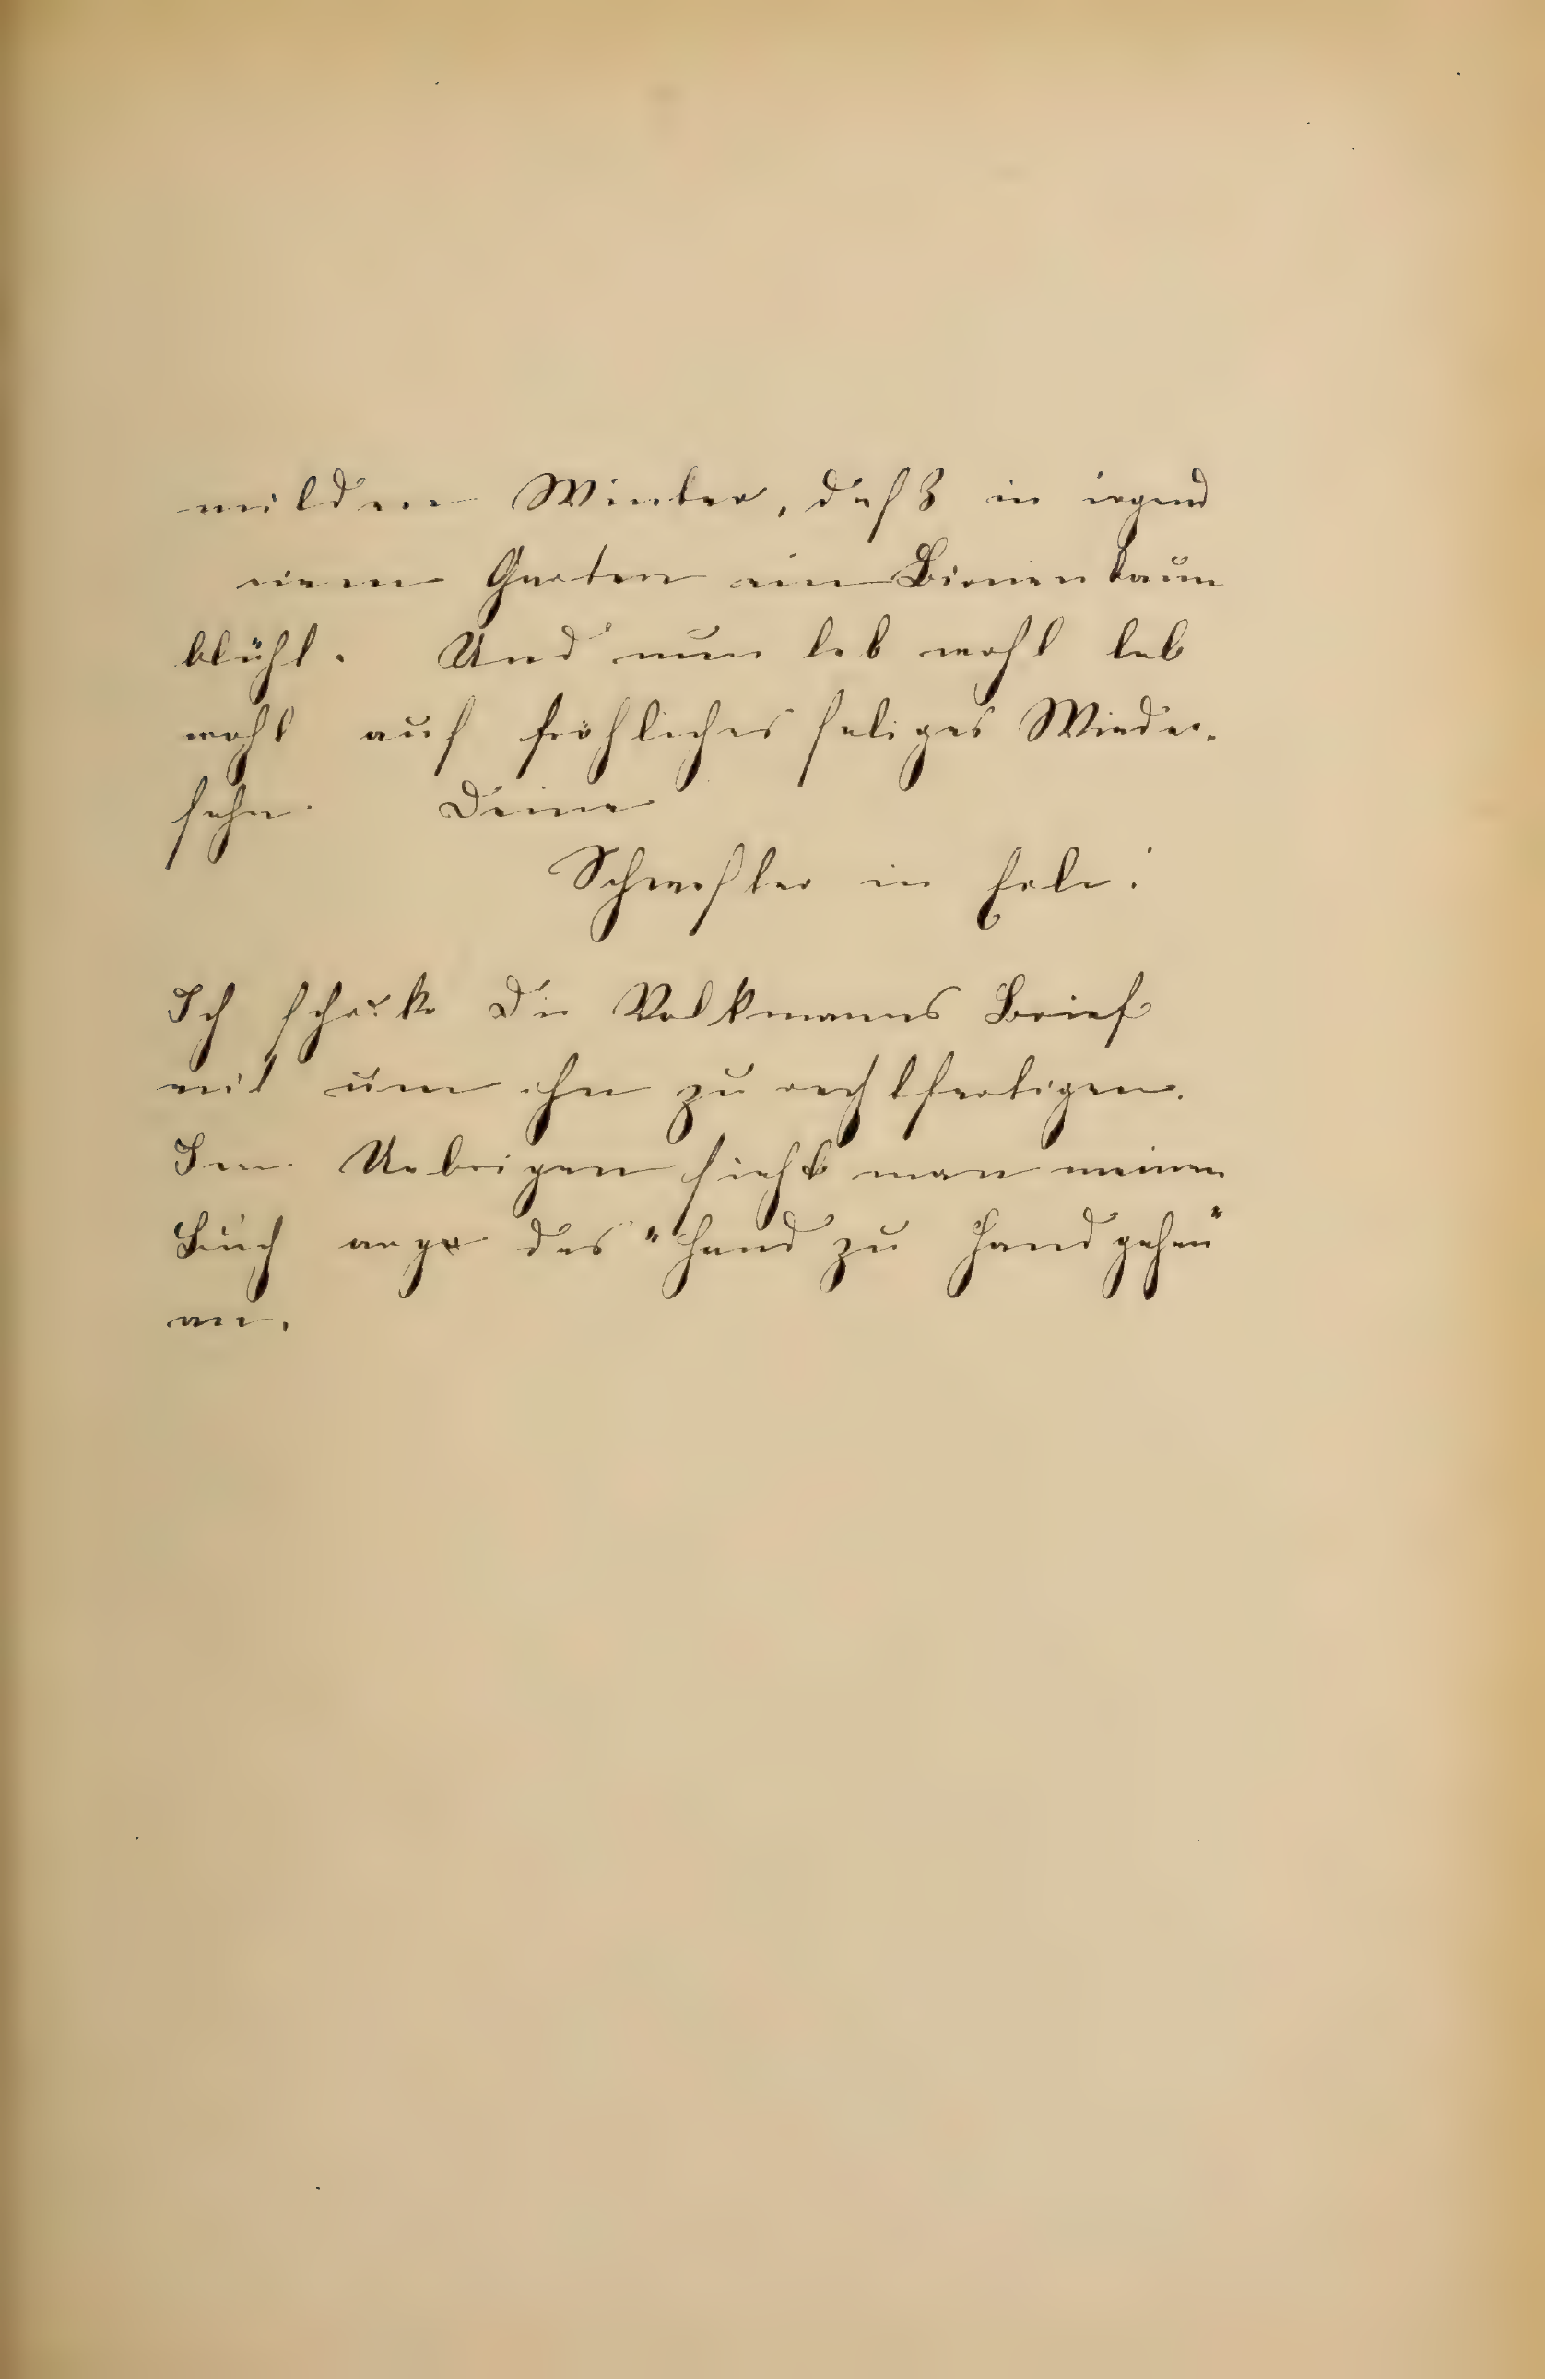 milden Winter, daß in irgend
einem Garten ein Birnenbaum
blüht. Und nun leb wohl leb
wohl auf fröhliches seliges Wieder-
sehn. Deine
Schwester in Erl.
Ich schicke Dir Volkmanns Brief
mit um ihn zu rechtfertigen.
Im Uebrigen sieht man meinem
Buch das "Hand zu Hand gehen"
an.